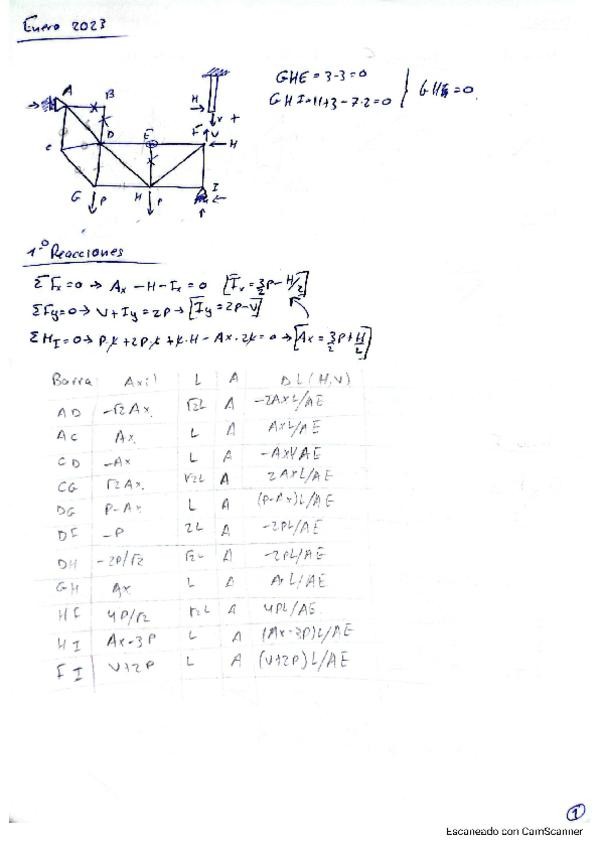 Enero 2023
GHE = 3-3=0
GHI = 11+3-7·2=0
GH=0.
A
B
H
x +
C
D
E
F
V
H
G
P
H
P
I
1º Reacciones
ΣFx=0 → Ax - H - Ix = 0 [Ix = 3/2 P - H/2]
ΣFy=0 → V + Iy = 2P → [Iy = 2P - V]
ΣMI=0 → P·L + 2P·L + L·H - Ax·2L = 0 → [Ax = 3/2 P + H/2]
Barra Axil L A DL (H,V)
AD -√2 Ax √2L A -2AxL/AE
AC Ax L A AxL/AE
CD -Ax L A -AxL/AE
CG √2 Ax √2L A 2AxL/AE
DG P-Ax L A (P-Ax)L/AE
DF -P 2L A -2PL/AE
DH -2P/√2 √2L A -2PL/AE
GH Ax L A AxL/AE
HF 4P/√2 √2L A 4PL/AE
HI Ax-3P L A (Ax-3P)L/AE
FI V+2P L A (V+2P)L/AE
1
Escaneado con CamScanner